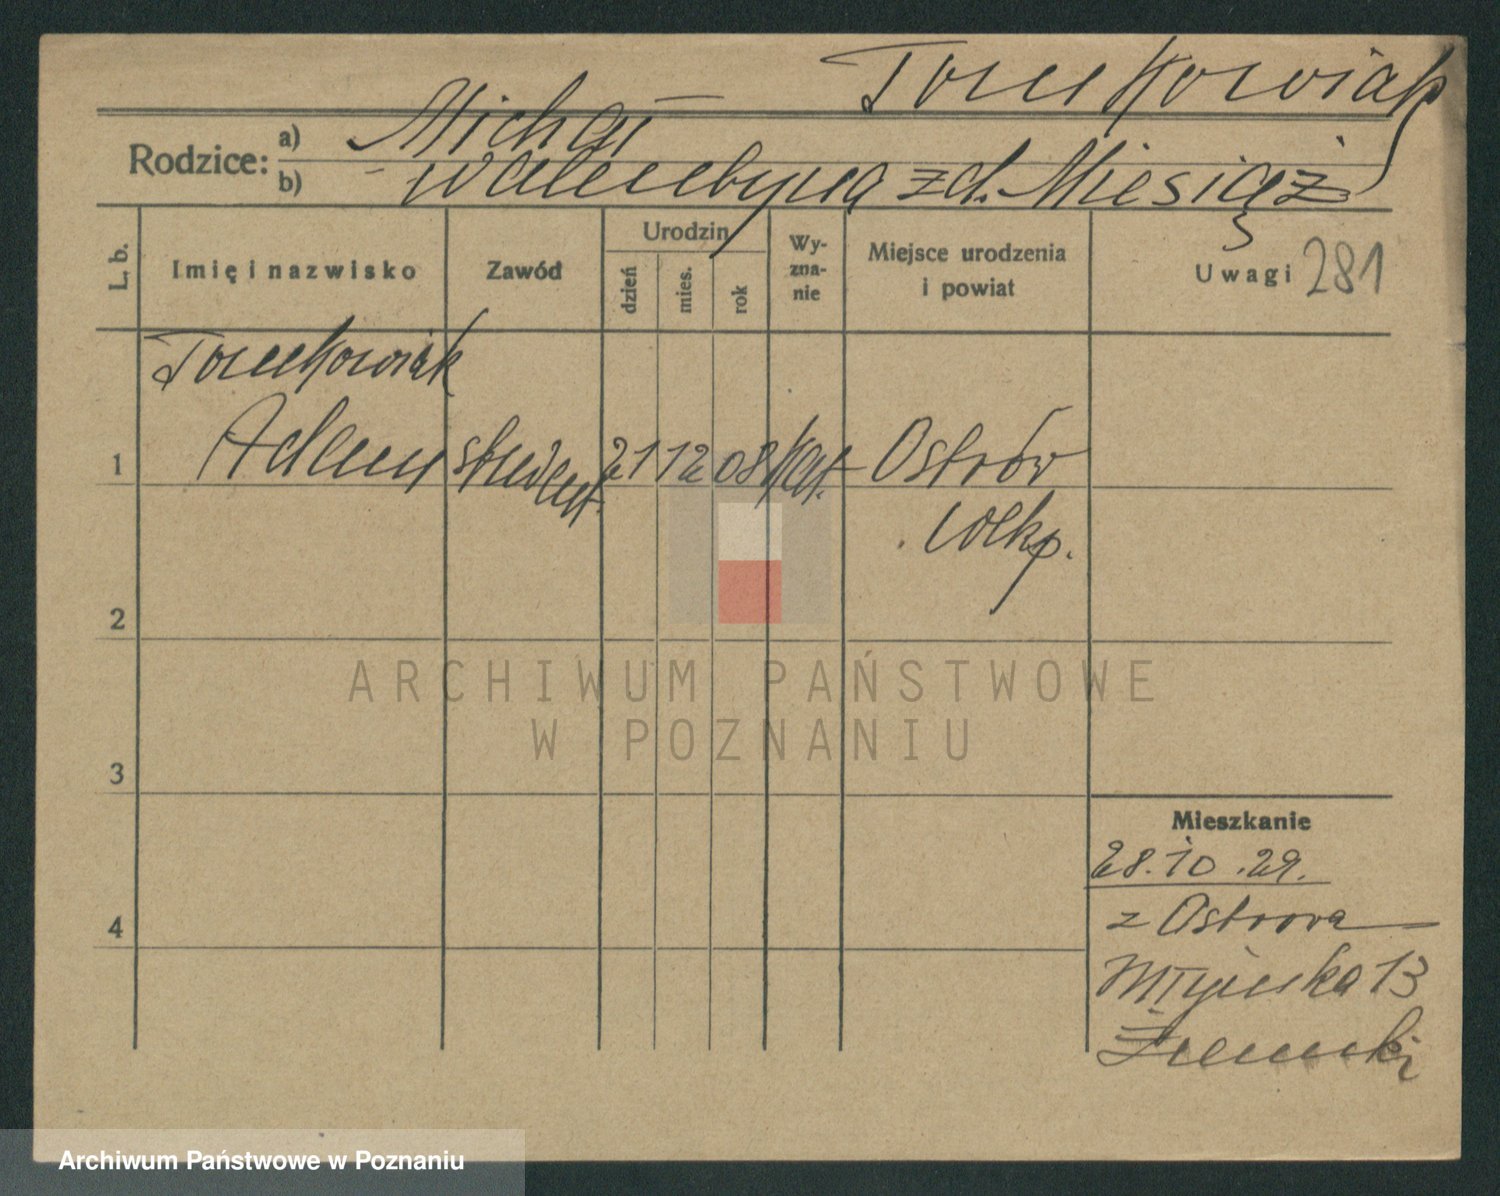 Tomkowiak
Rodzice: a) Michał
b) Walentyna zd. Miesiąż
L. b. Imię i nazwisko Zawód Urodzin dzień mies. rok Wy-zna-nie Miejsce urodzenia i powiat Uwagi 281
Tomkowiak
1 Adam student. 21 12 08 kat. Ostrów
wlkp.
2
ARCHIWUM PAŃSTWOWE
W POZNANIU
3
Mieszkanie
28.10.29.
4 z Ostrowa
Młyńska 13
Archiwum Państwowe w Poznaniu